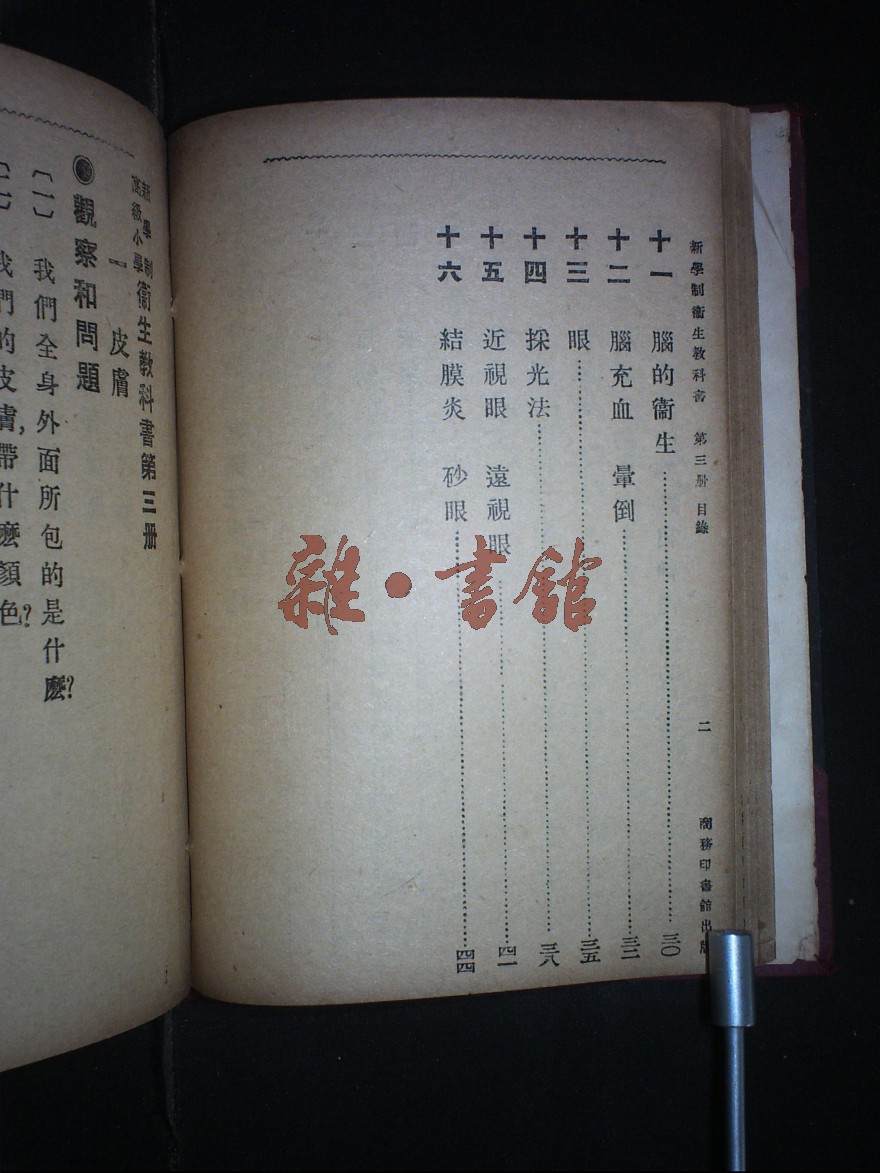 新學制衞生教科書 第三册 目錄 二 商務印書館出版
十一 腦的衞生 三〇
十二 腦充血 暈倒 三二
十三 眼 三五
十四 採光法 三八
十五 近視眼 遠視眼 四一
十六 結膜炎 砂眼 四四
雜·書館
新學制高級小學衞生教科書第三册
一 皮膚
觀察和問題
〔一〕 我們全身外面所包的是什麽?
我們的皮膚,帶什麽顏色?